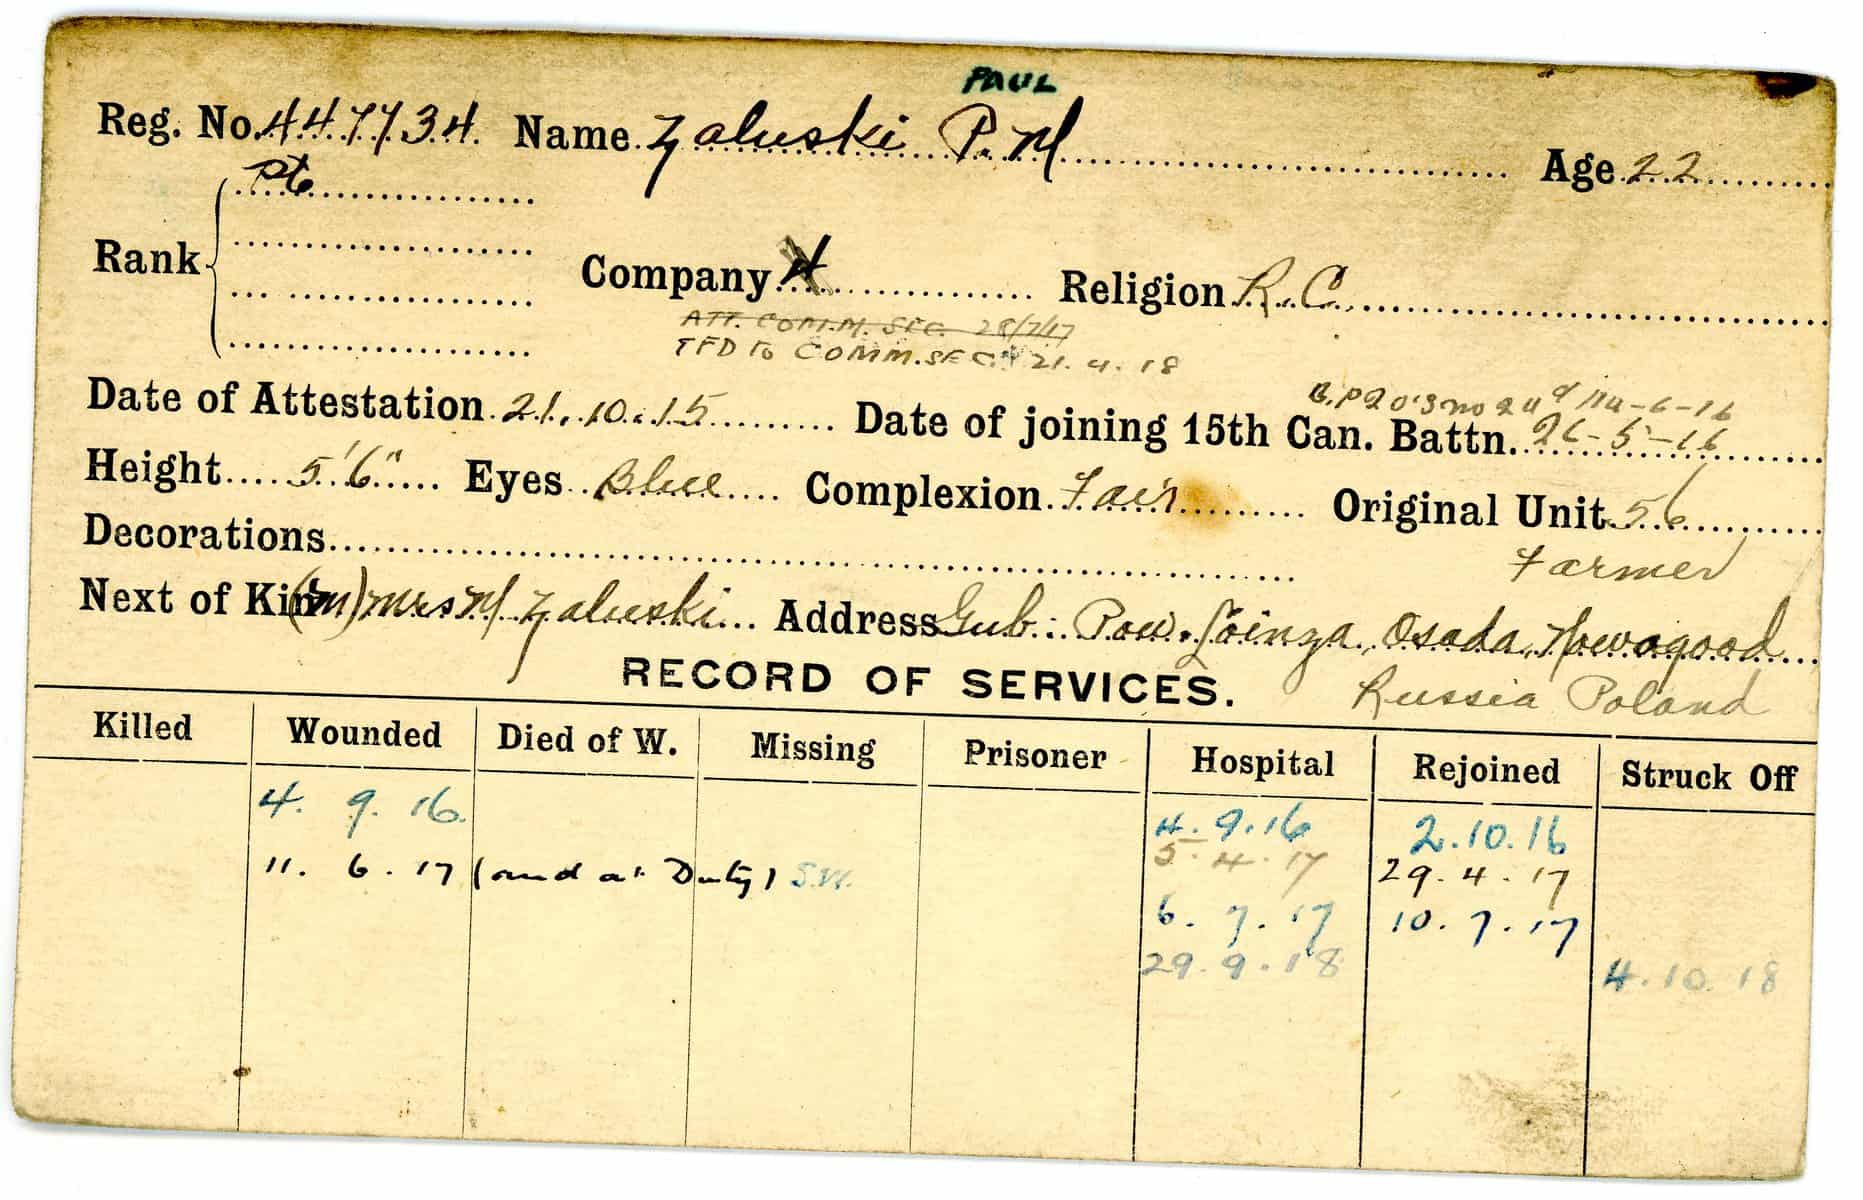 PAUL
Reg. No. 447734 Name Zaluski P. M Age 22
Rank Pte
Company 4 Religion R.C.
ATT. COMM. SEC. 28/7/17
TFD To COMM. SEC. 21.4.18
Date of Attestation 21.10.15 Date of joining 15th Can. Battn. 26-5-16
Height 5'6" Eyes Blue Complexion Fair Original Unit 56
Decorations Farmer
Next of Kin (m) Mrs M Zaluski Address Gub. Pow. Loinza, Osada, Nowogood
Russia Poland
RECORD OF SERVICES.
Killed Wounded Died of W. Missing Prisoner Hospital Rejoined Struck Off
4. 9. 16. 4. 9. 16 2. 10. 16
5. 4. 17 29. 4. 17
11. 6. 17 (and at Duty) S.W.
6. 7. 17 10. 7. 17
29. 9. 18 4. 10. 18